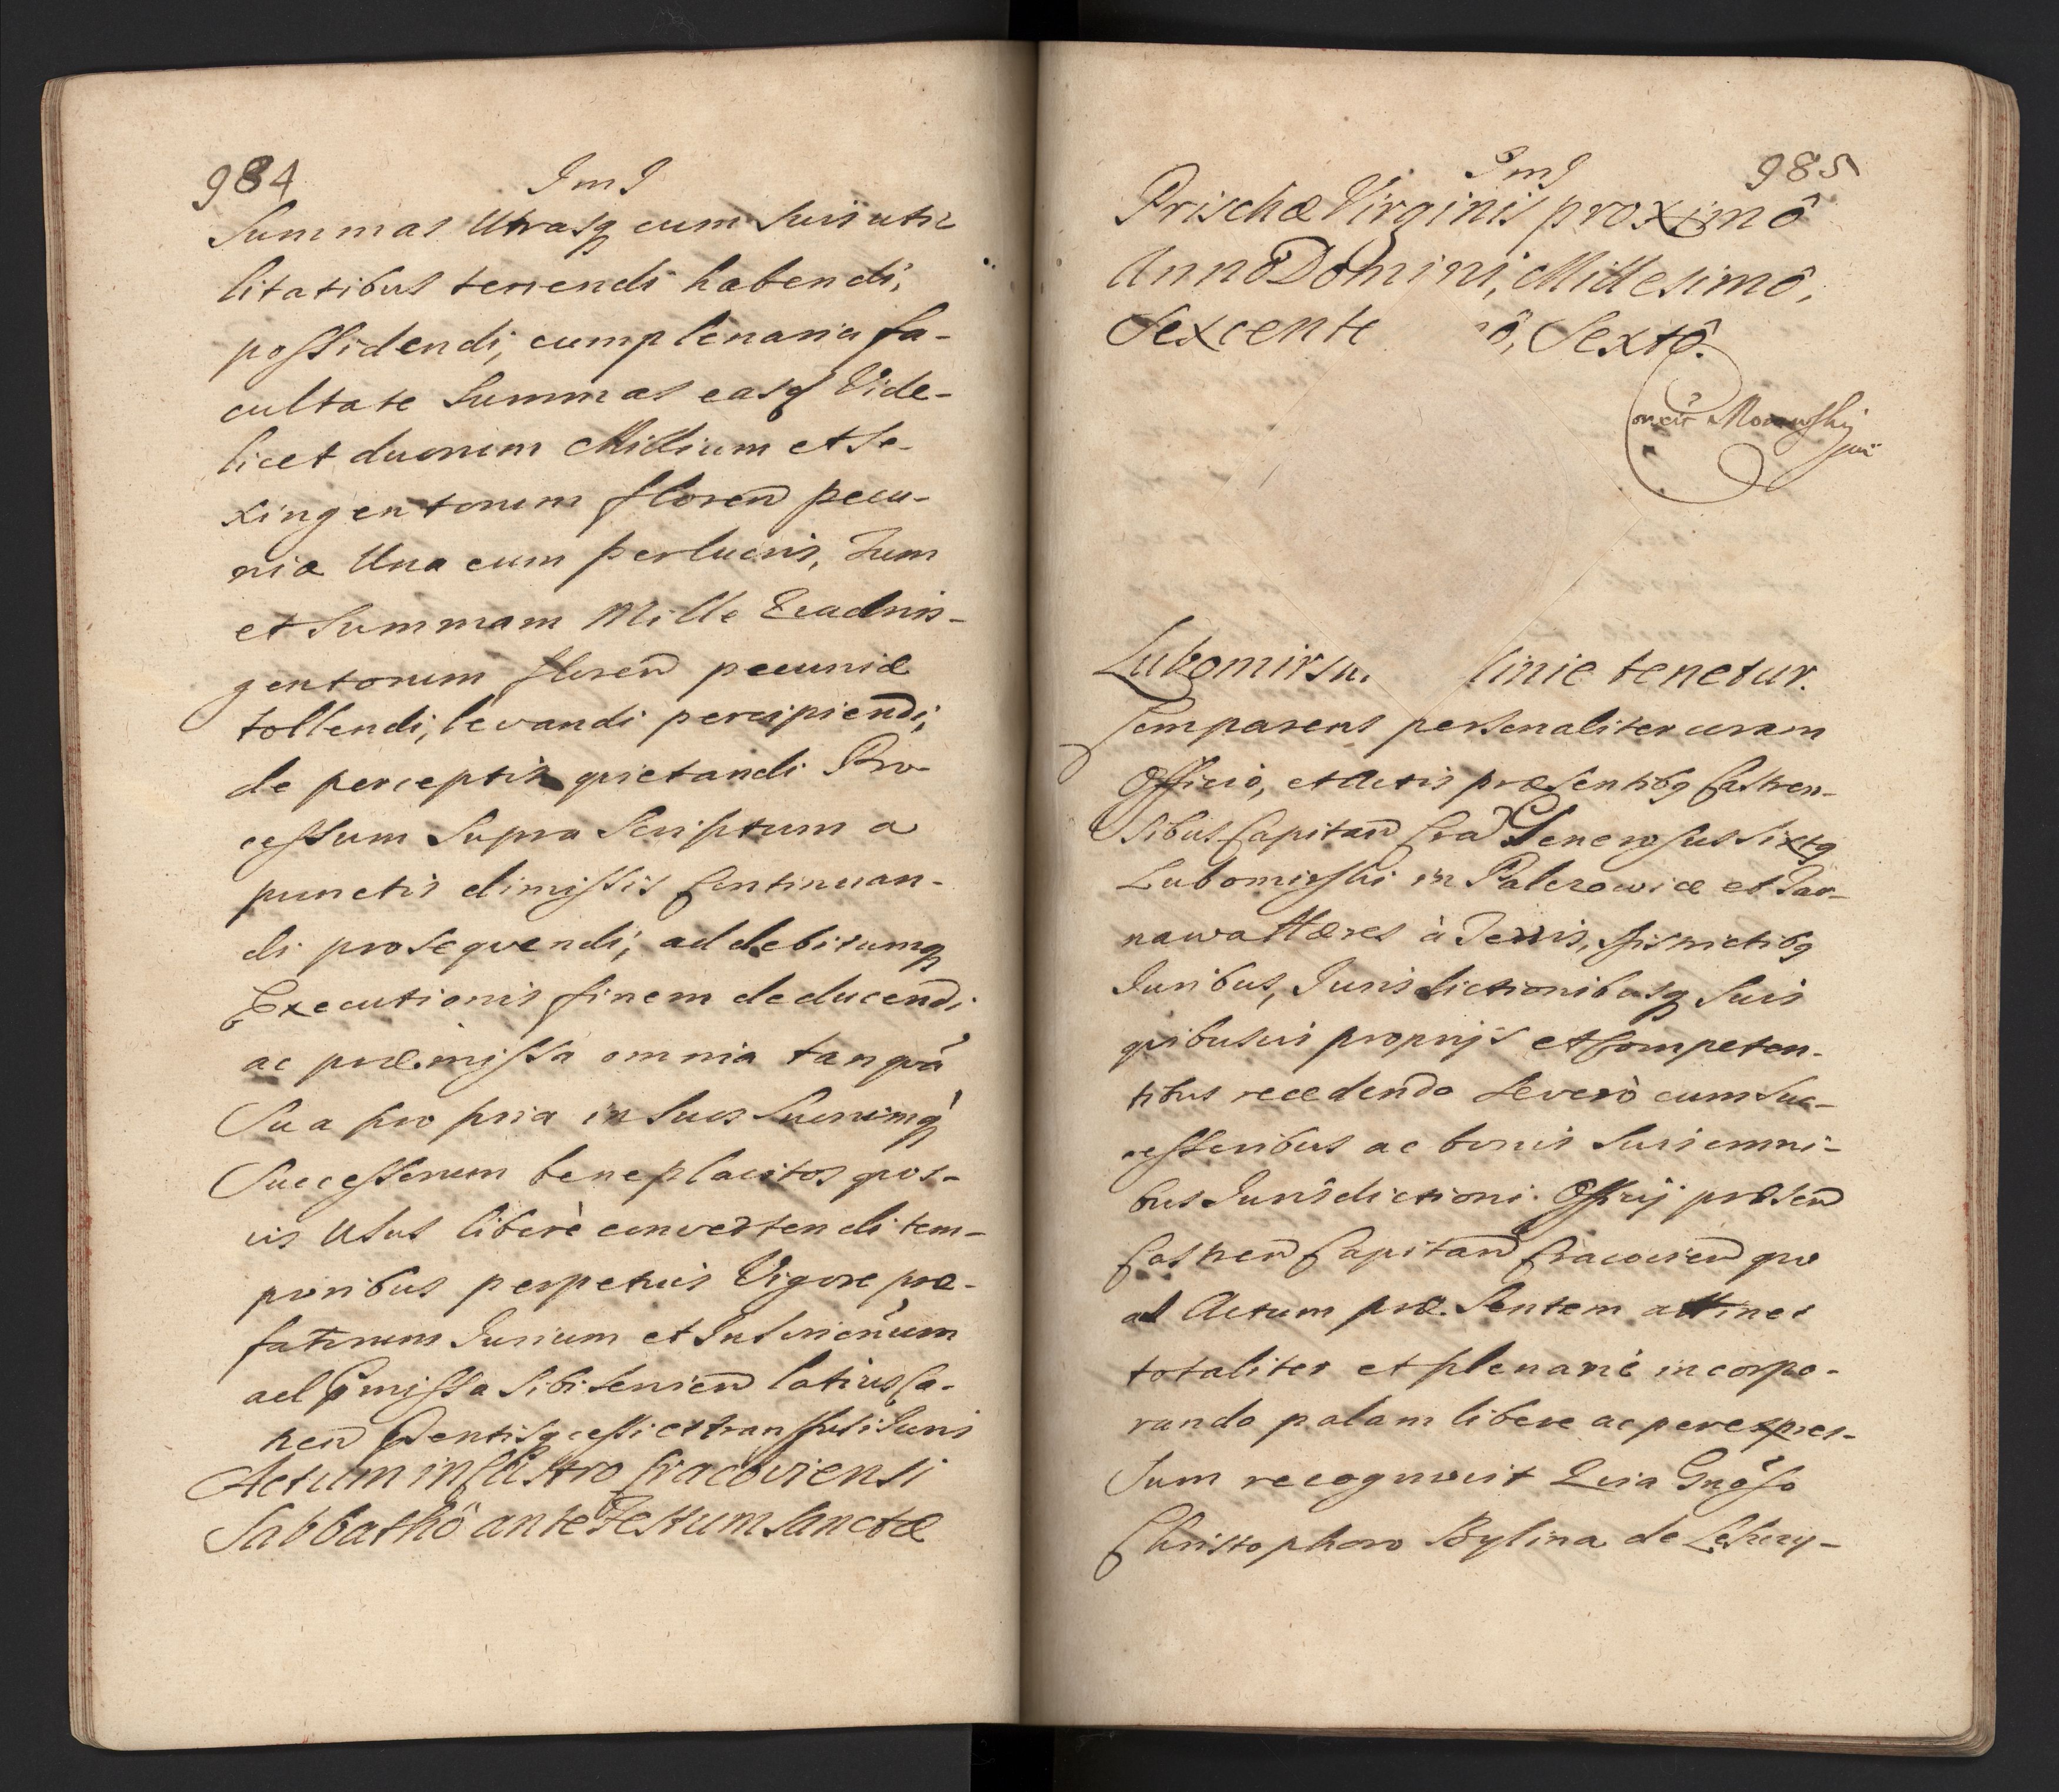 984
ImI
Summas Utrasq cum Suis uti
litatibus tenendi habendi,
possidendi, cum plenaria fa-
cultate Summas easq Vide-
licet duorum Millium et Se-
xingentorum floren pecu-
niæ Una cum perlucris, Tum
et Summam Mille Quadrin-
gentorum floren pecuniæ
tollendi, levandi percipiendi,
de perceptis quietandi Pro-
cessum Supra Scriptum a
punctis dimissis Continuan-
di prosequendi, ad debitumq
Executionis finem deducendi
ac præmissa omnia tanquā
Sua propria in Suos Suorumq
Successorum beneplacitos quos-
vis Usus liberè convertendi tem-
poribus perpetuis Vigore præ-
fatorum Iurium et Inscriōnum
ad pmissa Sibi Servien latius Ca-
Actum in Castro Cracoviensi
Sabbathô ante Festum Sanctæ
ImI
985
Prischæ Virginis proximô
Annô Domini, Millesimô,
Sexcente ô, Sextô.
Morawski
Lubomirski linie tenetur.
Comparens personaliter coram
Officiô, et Actis præsentibq Castren-
sibus Capitan Cra Generosus Sixtq
Lubomirski in Palcrowice et Tar-
nawa Hæres à Terris, Districtibq
Iuribus, Iurisdictionibusq Suis
quibusvis proprijs et Competen-
tibus recedendo Se verò cum Suc-
cessoribus ac bonis Suis omni-
bus Iurisdictioni Officij præsen
Castren Capitan Cracovien quo
ad Actum præsentem attinet
totaliter et plenariè incorpo-
rando palam libere ac per expres-
Sum recognovit Quia Gnōso
Christophoro Bylina de